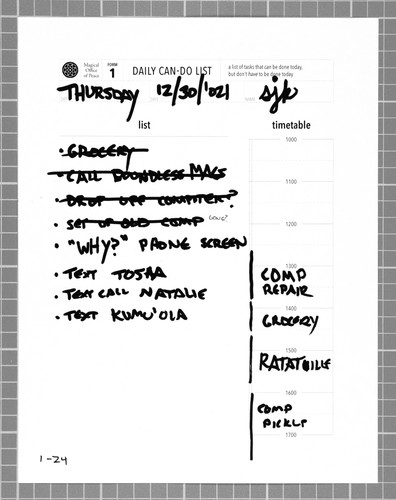 Magical Office of Peace
FORM 1
DAILY CAN-DO LIST
a list of tasks that can be done today,
but don't have to be done today
THURSDAY 12/30/'021 sjk
list
timetable
1000
1100
1200
1300
1400
1500
1600
1700
• GROCERY
• CALL BOUNDLESS MACS
• DROP OFF COMPUTER?
• SET UP OLD COMP
• "WHY?" PHONE SCREEN
• TEXT TOSHA
• TEXT CALL NATALIE
• TEXT KUMU'OLA
COMP
REPAIR
GROCERY
RATATUILLE
COMP
PICKUP
1-24